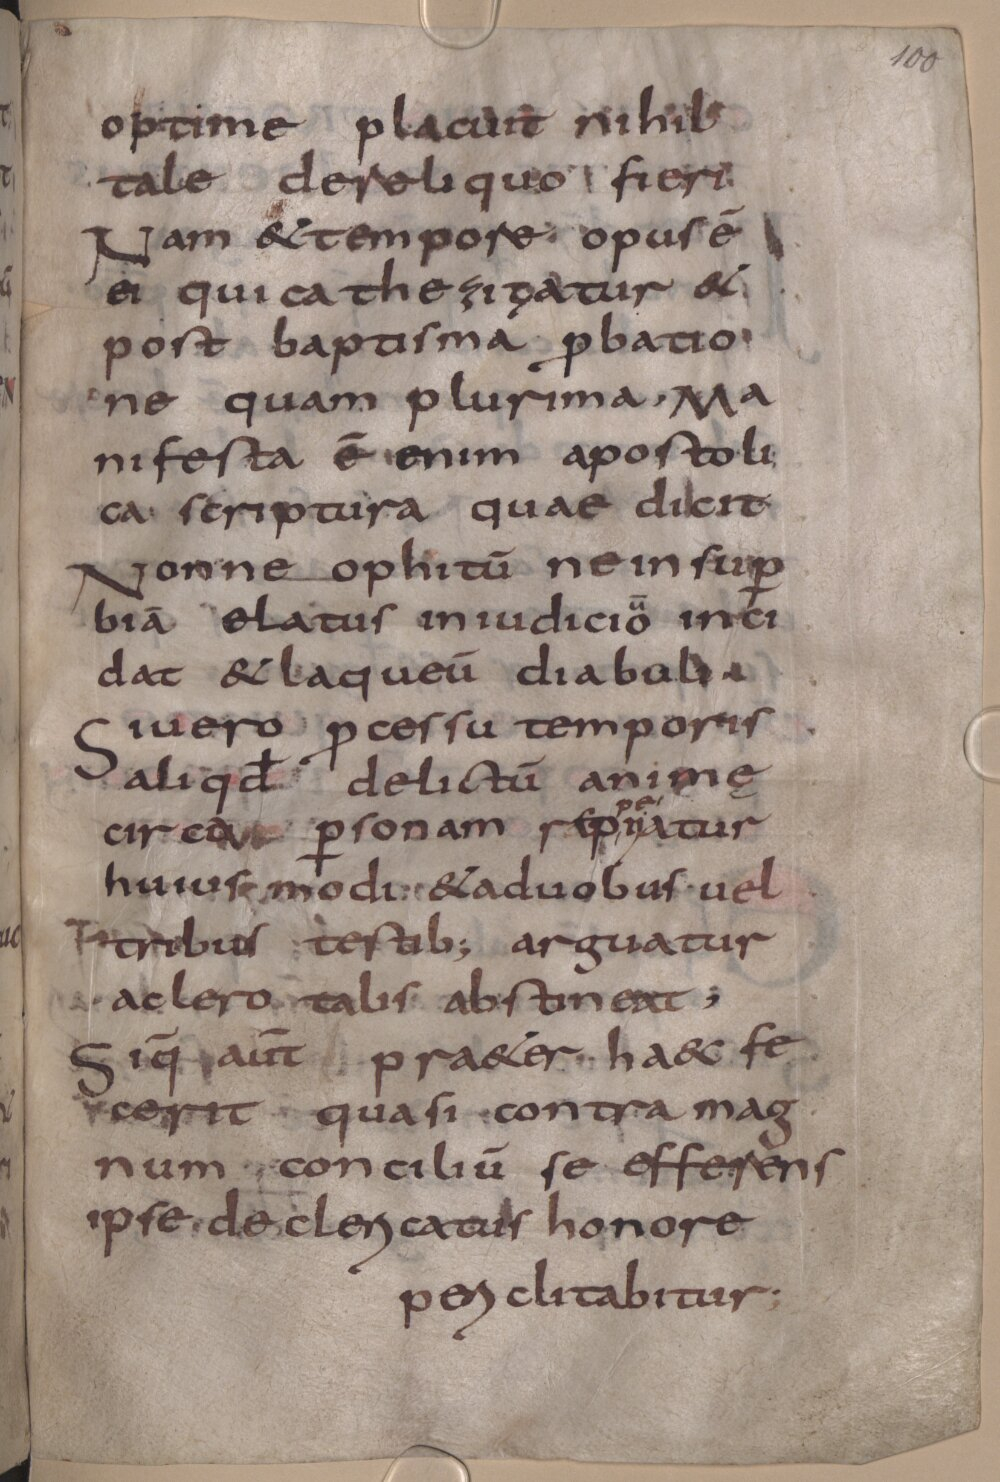 100
optime placuit nihil
tale dereliquo fieri
Nam &tempore opus ē
ei quicathezizatur &
post baptisma ꝓbatio
ne quam plurima. Ma
nifesta ē enim apostoli
ca scriptura quae dicit
Nonne ophitū neinsuꝑ
biā elatus iniudiciū inci
dat &laqueū diaboli.
Siuero ꝓcessu temporis
aliqđ delictū animę
circa ꝑsonam
huiusmodi &aduobus uel
tribus testib; arguatur
aclero talis abstineat;
Siq̄ aūt pra&er ha&c fe
cerit quasi contra mag
num conciliū se efferens
ipse declericatus honore
periclitabitur;